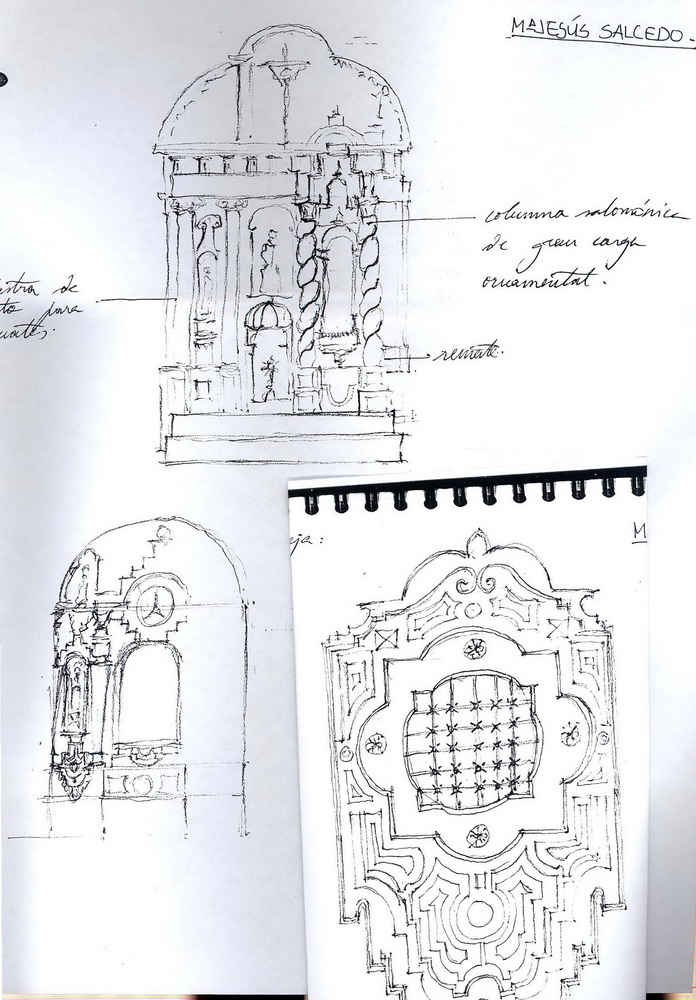 Mª JESÚS SALCEDO.
columna salomónica
de gran carga
ornamental.
de
para
remate.
M